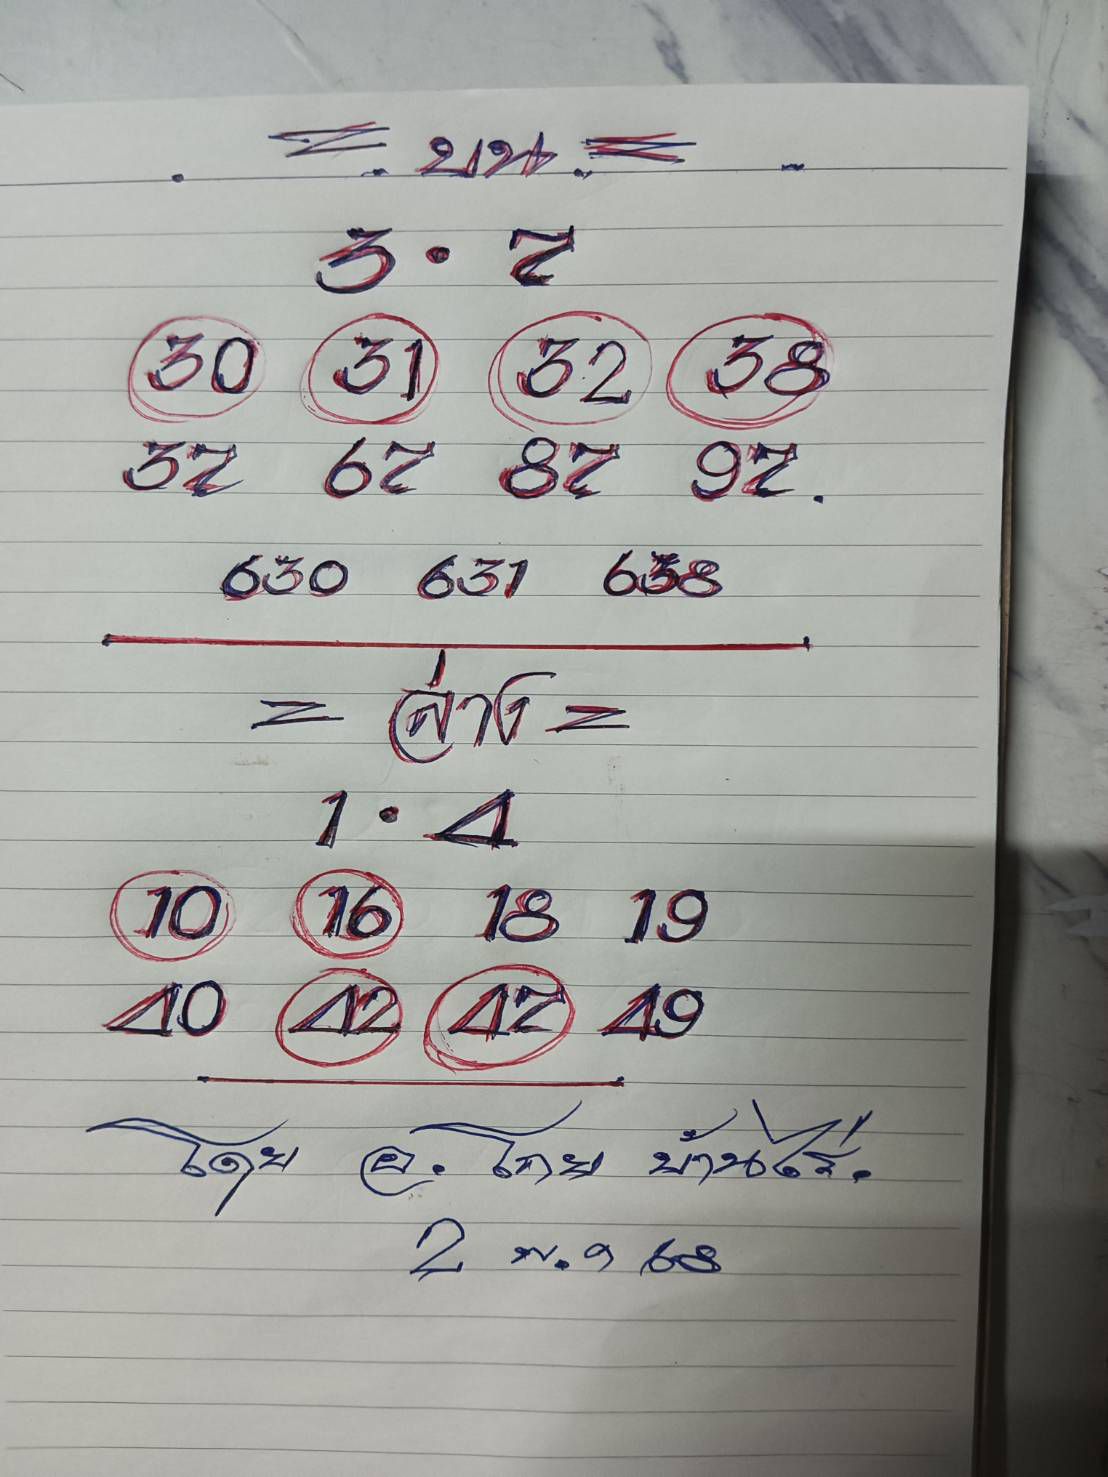 = บน =
3 · 7
30 31 32 38
37 67 87 97.
630 631 638
= ล่าง =
1 · 4
10 16 18 19
40 42 47 49
โดย อ. โทย บ้านไร่.
2 พ.ย 68